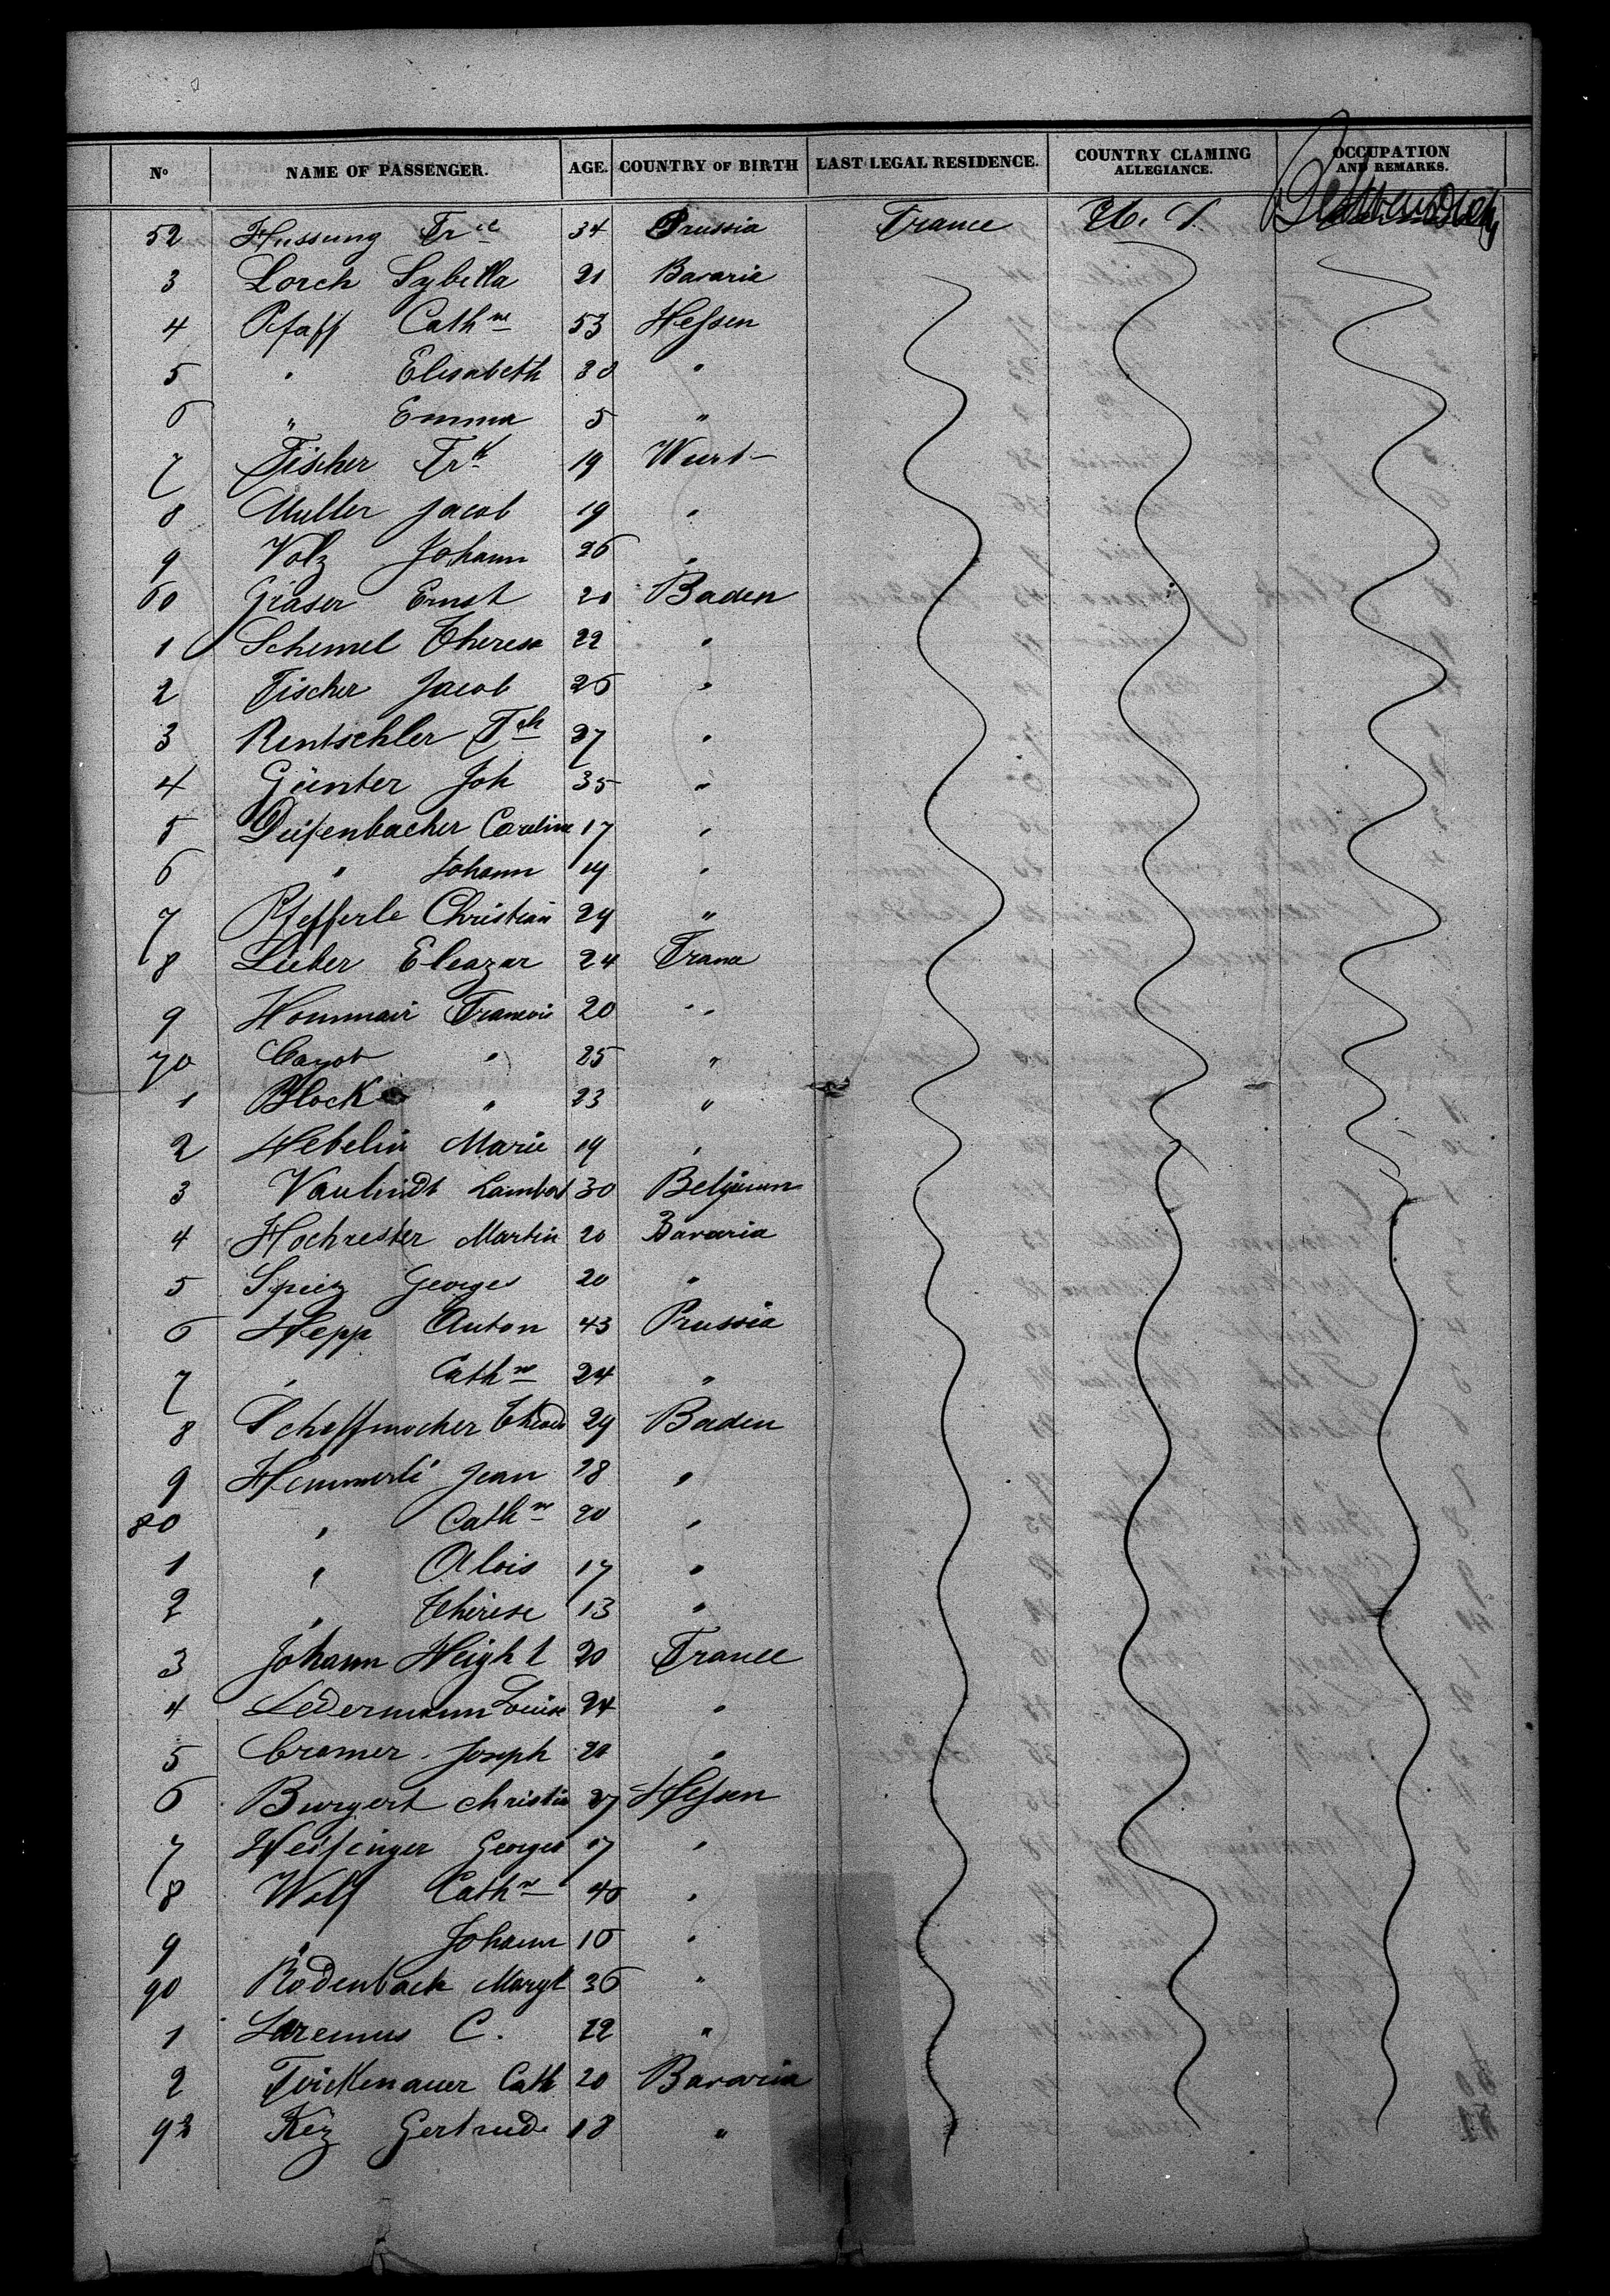 N° NAME OF PASSENGER. AGE. COUNTRY OF BIRTH LAST LEGAL RESIDENCE. COUNTRY CLAMING ALLEGIANCE. OCCUPATION AND REMARKS.
52 Hussung Fr 34 Prussia France U. S.
3 Lorch Sybilla 21 Bavaria
4 Pfaff Cathne 53 Hessen
5 " Elisabeth 30 "
6 " Emma 5 "
7 Fischer Frk 19 Wurt-
8 Muller Jacob 19 "
9 Volz Johann 26 "
60 Gräser Ernst 20 Baden
1 Schemel Theresa 22 "
2 Fischer Jacob 26 "
3 Rentschler Fch 27 "
4 Günter Joh 35 "
5 Diefenbacher Caroline 17 "
6 " Johann 19 "
7 Pfefferle Christian 29 "
8 Lieber Eleazar 24 France
9 Hommair Francois 20 "
70 Cayot " 25 "
1 Block " 23 "
2 Hebelin Marie 19 "
3 Vaulindt Lambert 30 Belgium
4 Hochrester Martin 20 Bavaria
5 Spiez Georges 20 "
6 Hepp Anton 43 Prussia
7 " Cathne 24 "
8 Scheffmocher Theodo 29 Baden
9 Hemmerlé Jean 28 "
80 " Cathne 20 "
1 " Alois 17 "
2 " Thérèse 13 "
3 Johann Height 20 France
4 Ledermann Louise 24 "
5 Cramer Joseph 20 "
6 Burgert Christin 27 Hessen
7 Georges 17 "
8 Wolf Cathne 40 "
9 " Johann 16 "
90 Rödenback Margt 36 "
1 Laremus C. 22 "
2 Frickenauer Cath 20 Bavaria
93 Kéz Gertrude 18 "